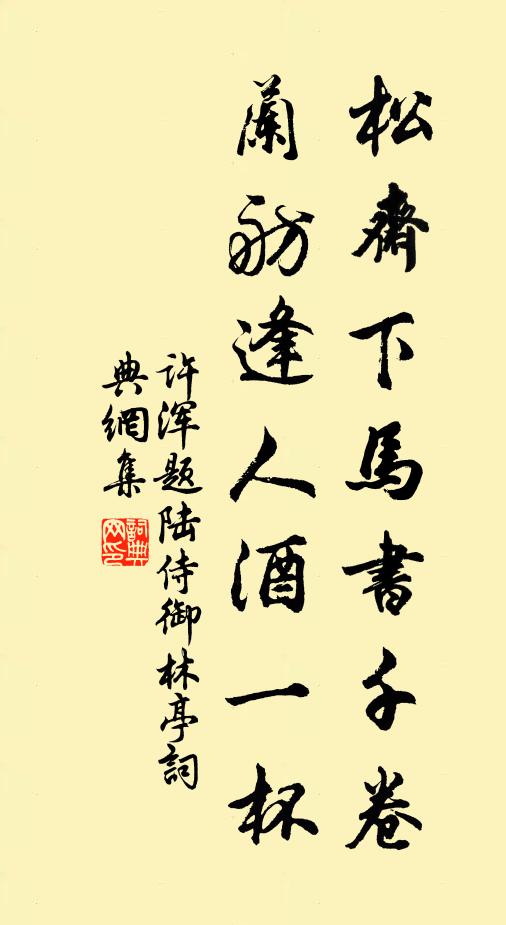 松齋下馬書千卷
蘭舫逢人酒一杯
许浑题陆侍御林亭詞
典網集
詞典網印